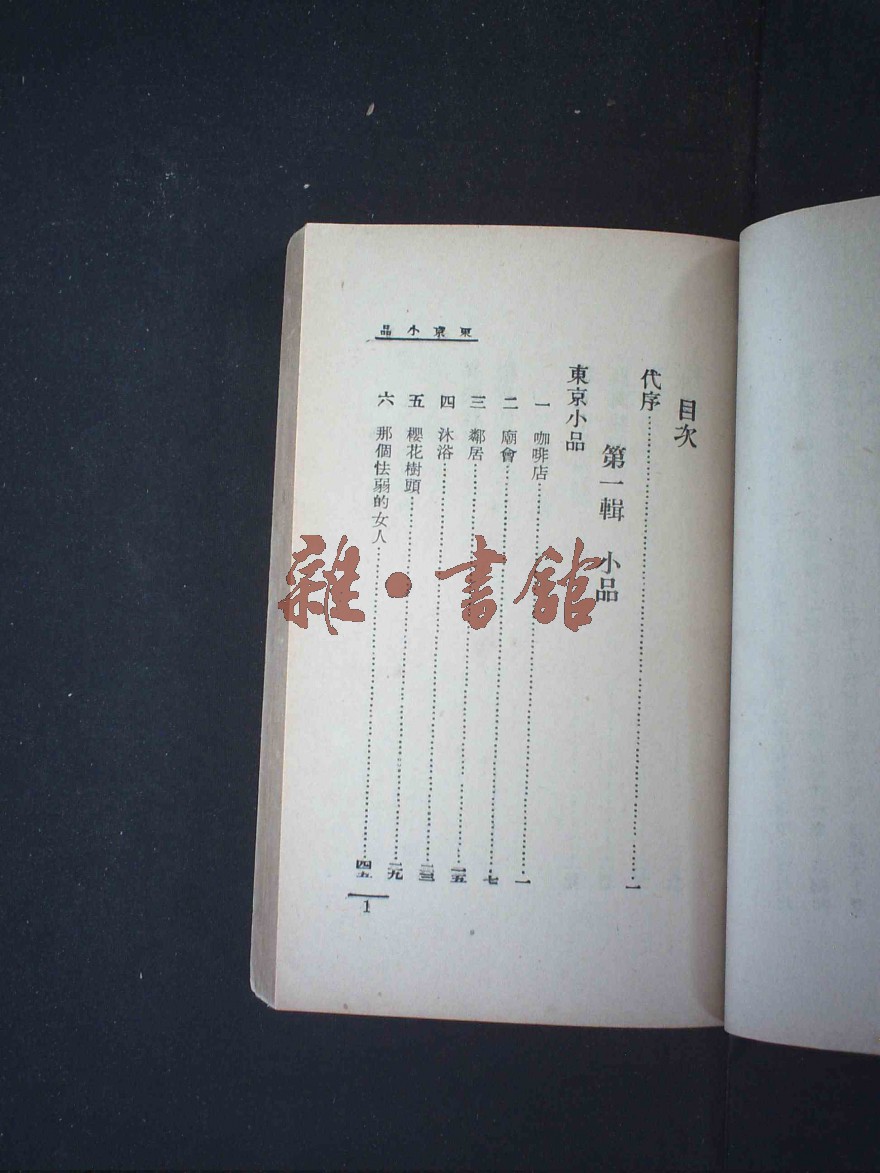 東京小品
目次
代序……一
第一輯 小品
東京小品
一 咖啡店……一
二 廟會……七
三 鄰居……一五
四 沐浴……二三
五 櫻花樹頭……二九
六 那個怯弱的女人……四五
1
雜·書館